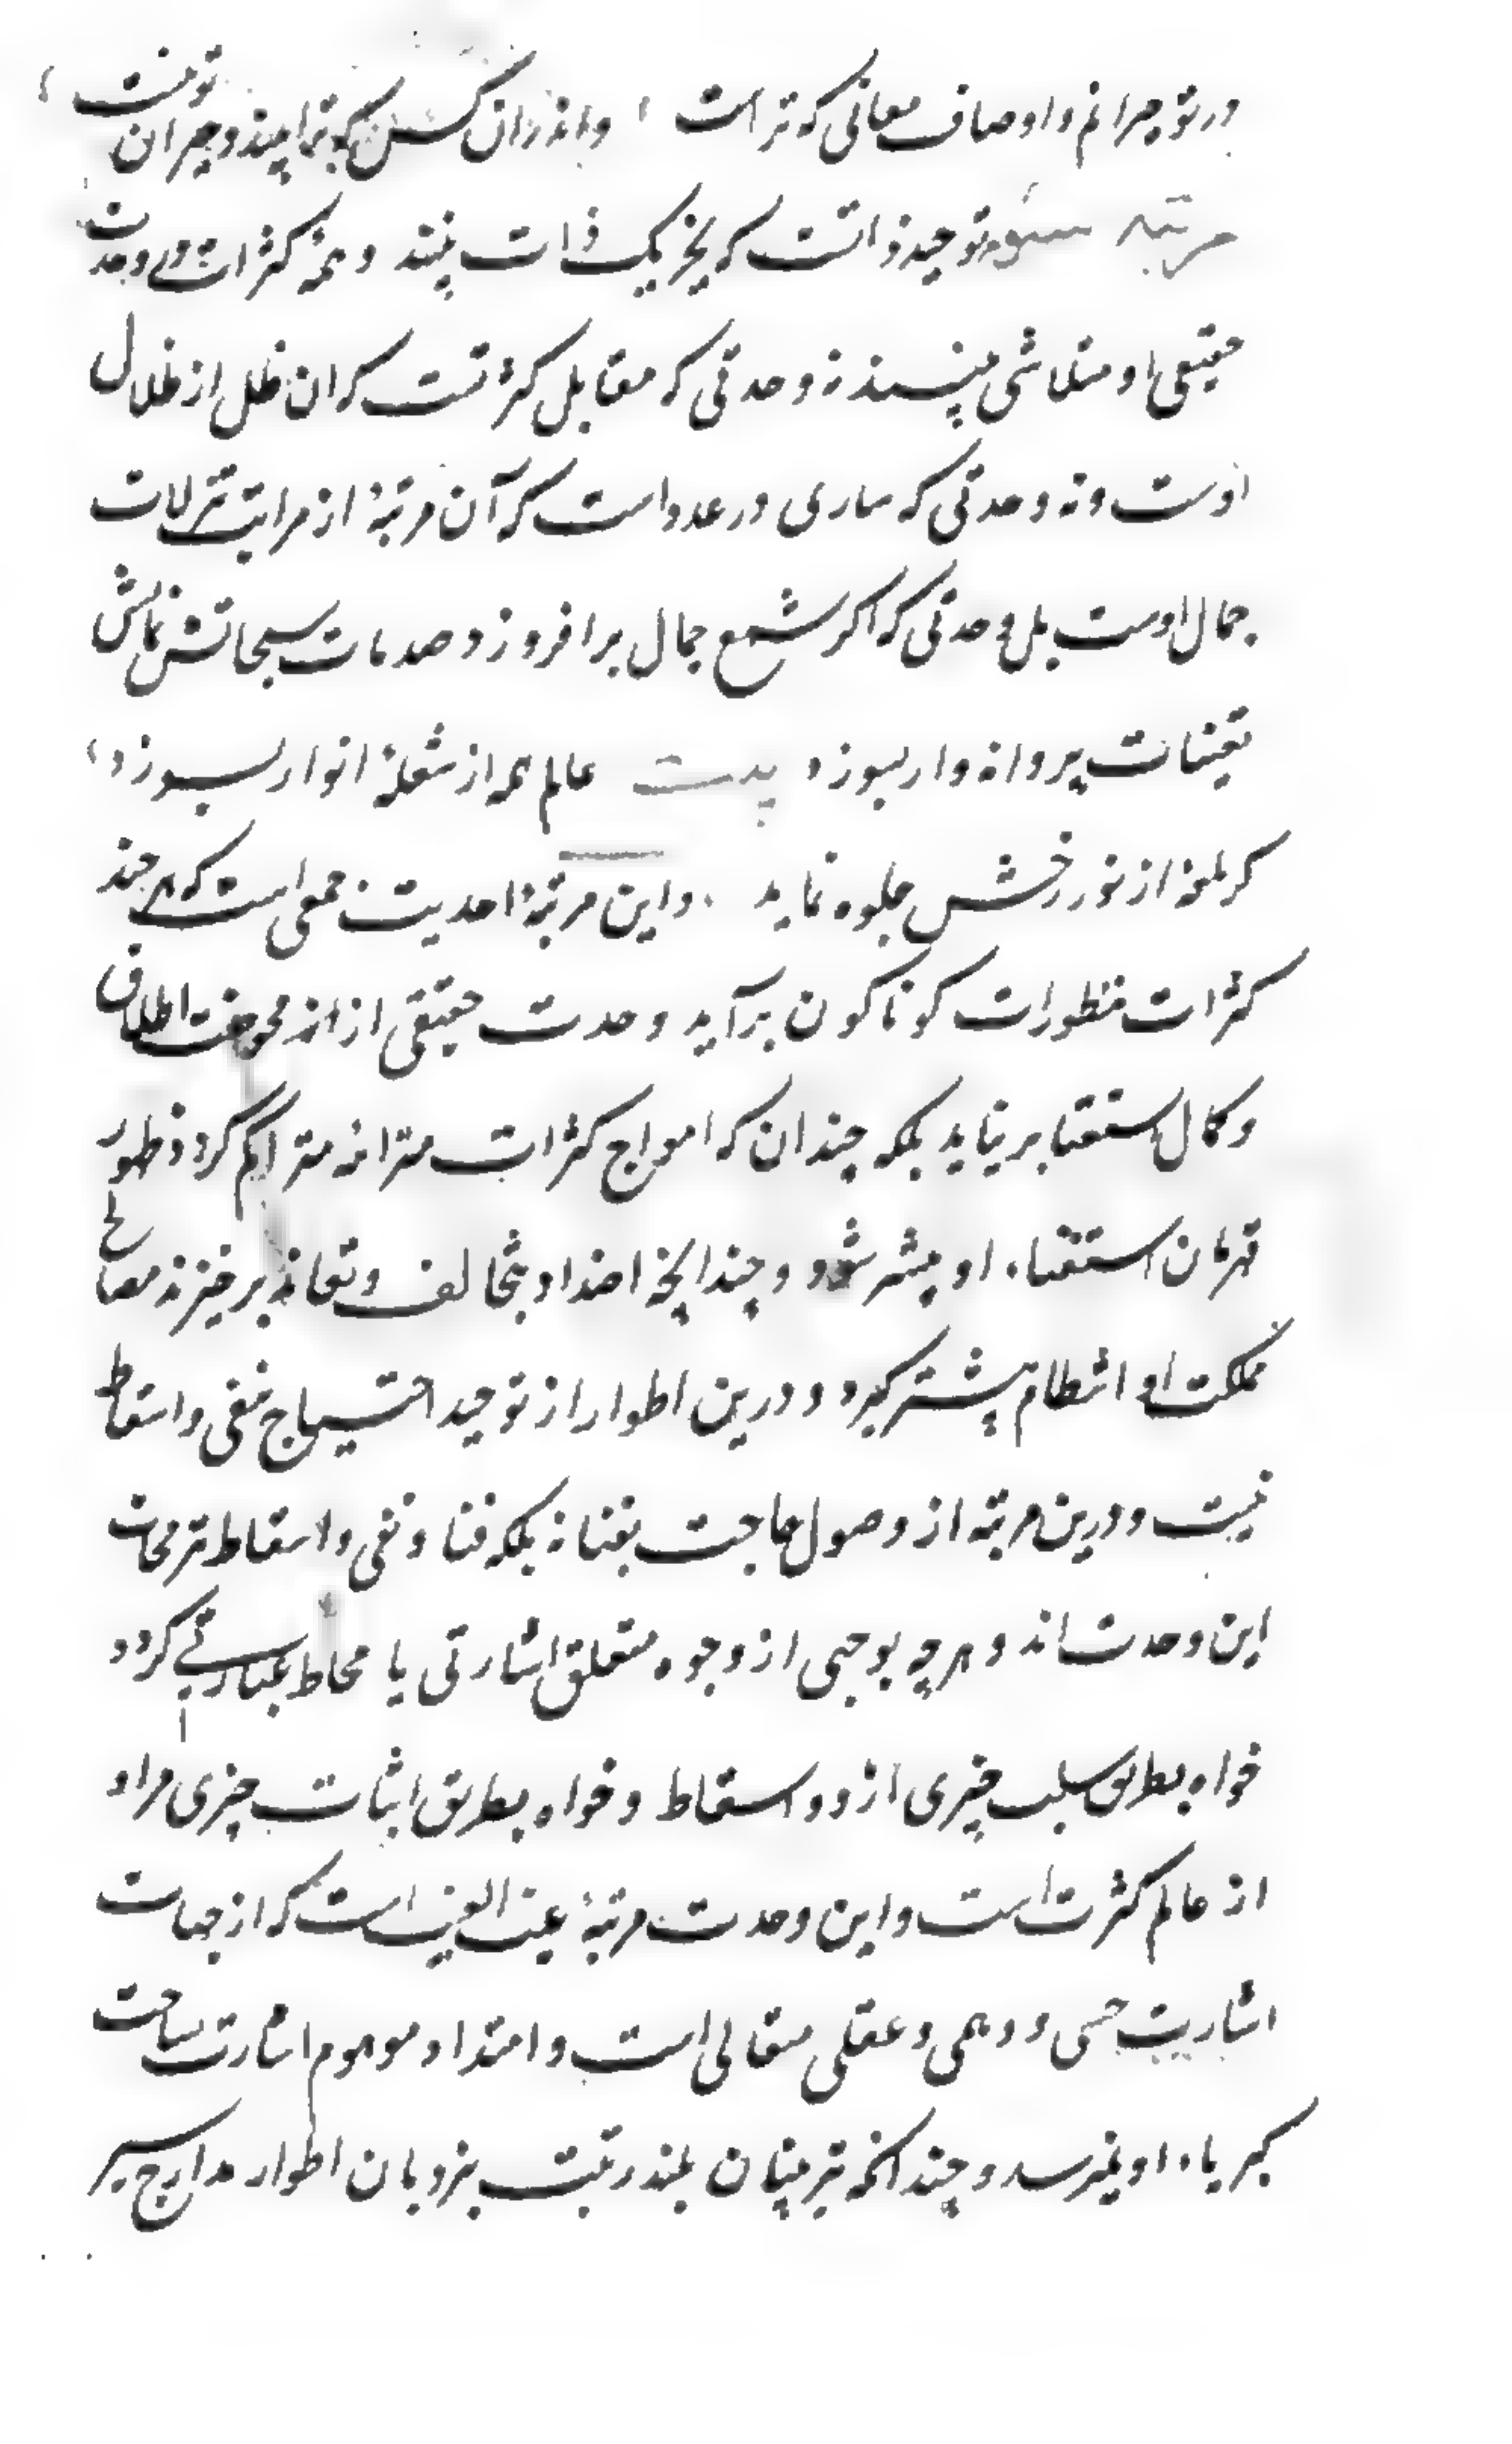 در تو حیرانم و اوصاف معانی که تراست واندران کس کو ترا بیند و حیران تو نیست
مرتبه سوم توحید ذاتست که بجز یک ذات نبیند و همهٔ کثرات در وحدت
حقیقی او متلاشی بیند نه وحدتی که مقابل کثرتست که آن ظل از ظلال
اوست و نه وحدتی که ساری در عدد است که آن مرتبهٔ از مراتب تنزلات
جمال اوست بل وحدتی که اگر شمع جمال برافروزد صدمات سبحاتش نمایش
تعینات پروانه وار بسوزد بیت عالم همه از شعلهٔ انوار بسوزد
گر لمعه از نور رخش جلوه نماید و این مرتبهٔ احدیت جمعی است که هر چند
کثرات متطورات گوناگون برآید وحدت حقیقی از اندر محوضت اطلاق
و کمال استغنا بر نیاید بلکه چندان که امواج کثرات مترادفه متراکم گردد ظهور
قهرمان استغناء او بیشتر شود و چندانچه اضداد بتخالف و تعاند برخیزند مصالح
مملکت او انتظام بیشتر گیرد و درین اطوار از توحید احتیاج بنفی و اسقاط
نیست و درین مرتبه از وصول حاجت بفنا نه بلکه فنا و نفی و اسقاط ترمحات
این وحدت‌اند و هر چه بوجهی از وجوه متعلق اشارتی یا محاط عبارتی گردد
خواه بطریق سلب چیزی ازو و اسقاط و خواه بطریق اثبات چیزی مراد
از عالم کثرت است و این وحدت مرتبهٔ غیب الغیب است که از جهات
اشاریت حسی و وهمی و عقلی متعالی است و امتداد موهوم اشارت بساحت
کبریاء او نمیرسد و چندانکه تیزبینان بلند رتبت بنردبان اطوار مدارج سیر